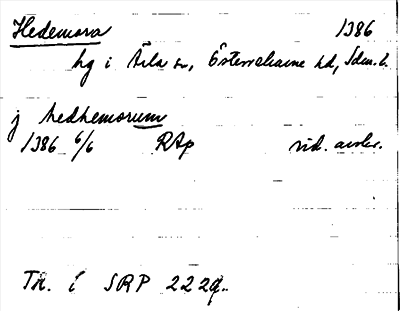 Hedemora 1386
hg i Årla sn, Österrekarne hd, Sdm. l.
j hedhemorum
1386 6/6 RAp vid. avskr.
Tr. i SRP 2229.